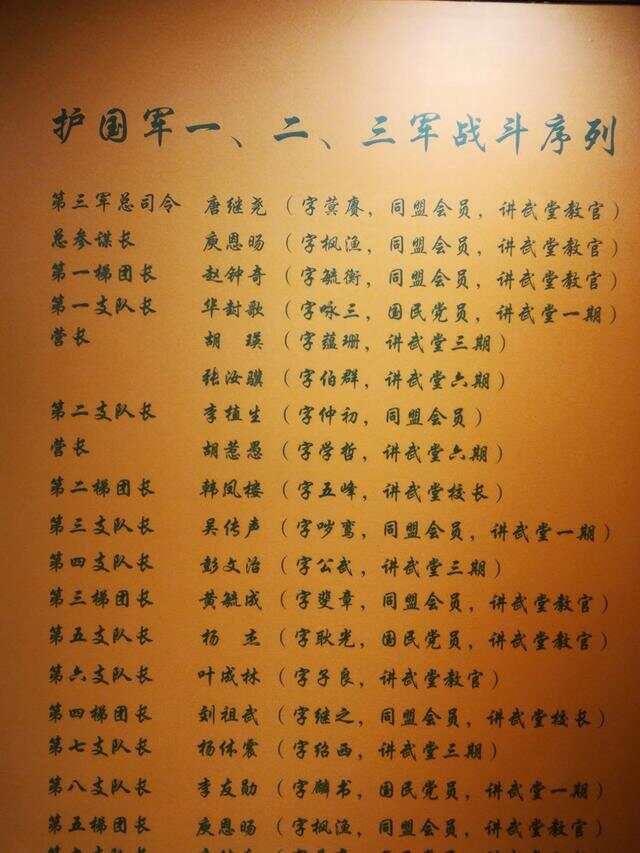 护国军一、二、三军战斗序列
第三军总司令 唐继尧（字蓂赓，同盟会员，讲武堂教官）
总参谋长 庾恩旸（字枫渔，同盟会员，讲武堂教官）
第一梯团长 赵钟奇（字毓衡，同盟会员，讲武堂教官）
第一支队长 华封歌（字咏三，国民党员，讲武堂一期）
营长 胡 瑛（字蕴珊，讲武堂三期）
张汝骥（字伯群，讲武堂六期）
第二支队长 李植生（字仲初，同盟会员）
营长 胡惹愚（字学哲，讲武堂六期）
第二梯团长 韩凤楼（字五峰，讲武堂校长）
第三支队长 吴传声（字哕鸾，同盟会员，讲武堂一期）
第四支队长 彭文治（字公武，讲武堂三期）
第三梯团长 黄毓成（字斐章，同盟会员，讲武堂教官）
第五支队长 杨 杰（字耿光，国民党员，讲武堂教官）
第六支队长 叶成林（字子良，讲武堂教官）
第四梯团长 刘祖武（字继之，同盟会员，讲武堂校长）
第七支队长 杨体震（字绍西，讲武堂三期）
第八支队长 李友勋（字麟书，国民党员，讲武堂一期）
第五梯团长 庾恩旸（字枫渔，同盟会员，讲武堂教官）